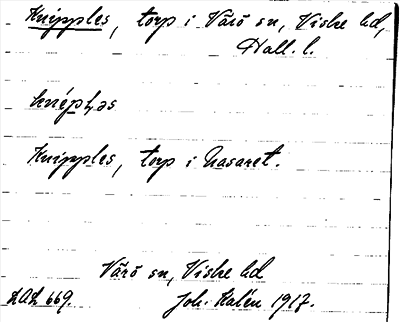 Knipples, torp i Värö sn, Viske hd,
Hall. l.
knépłəs
Knipples, torp i Nasaret.
Värö sn, Viske hd
LAL 669. Joh. Kalén 1917.